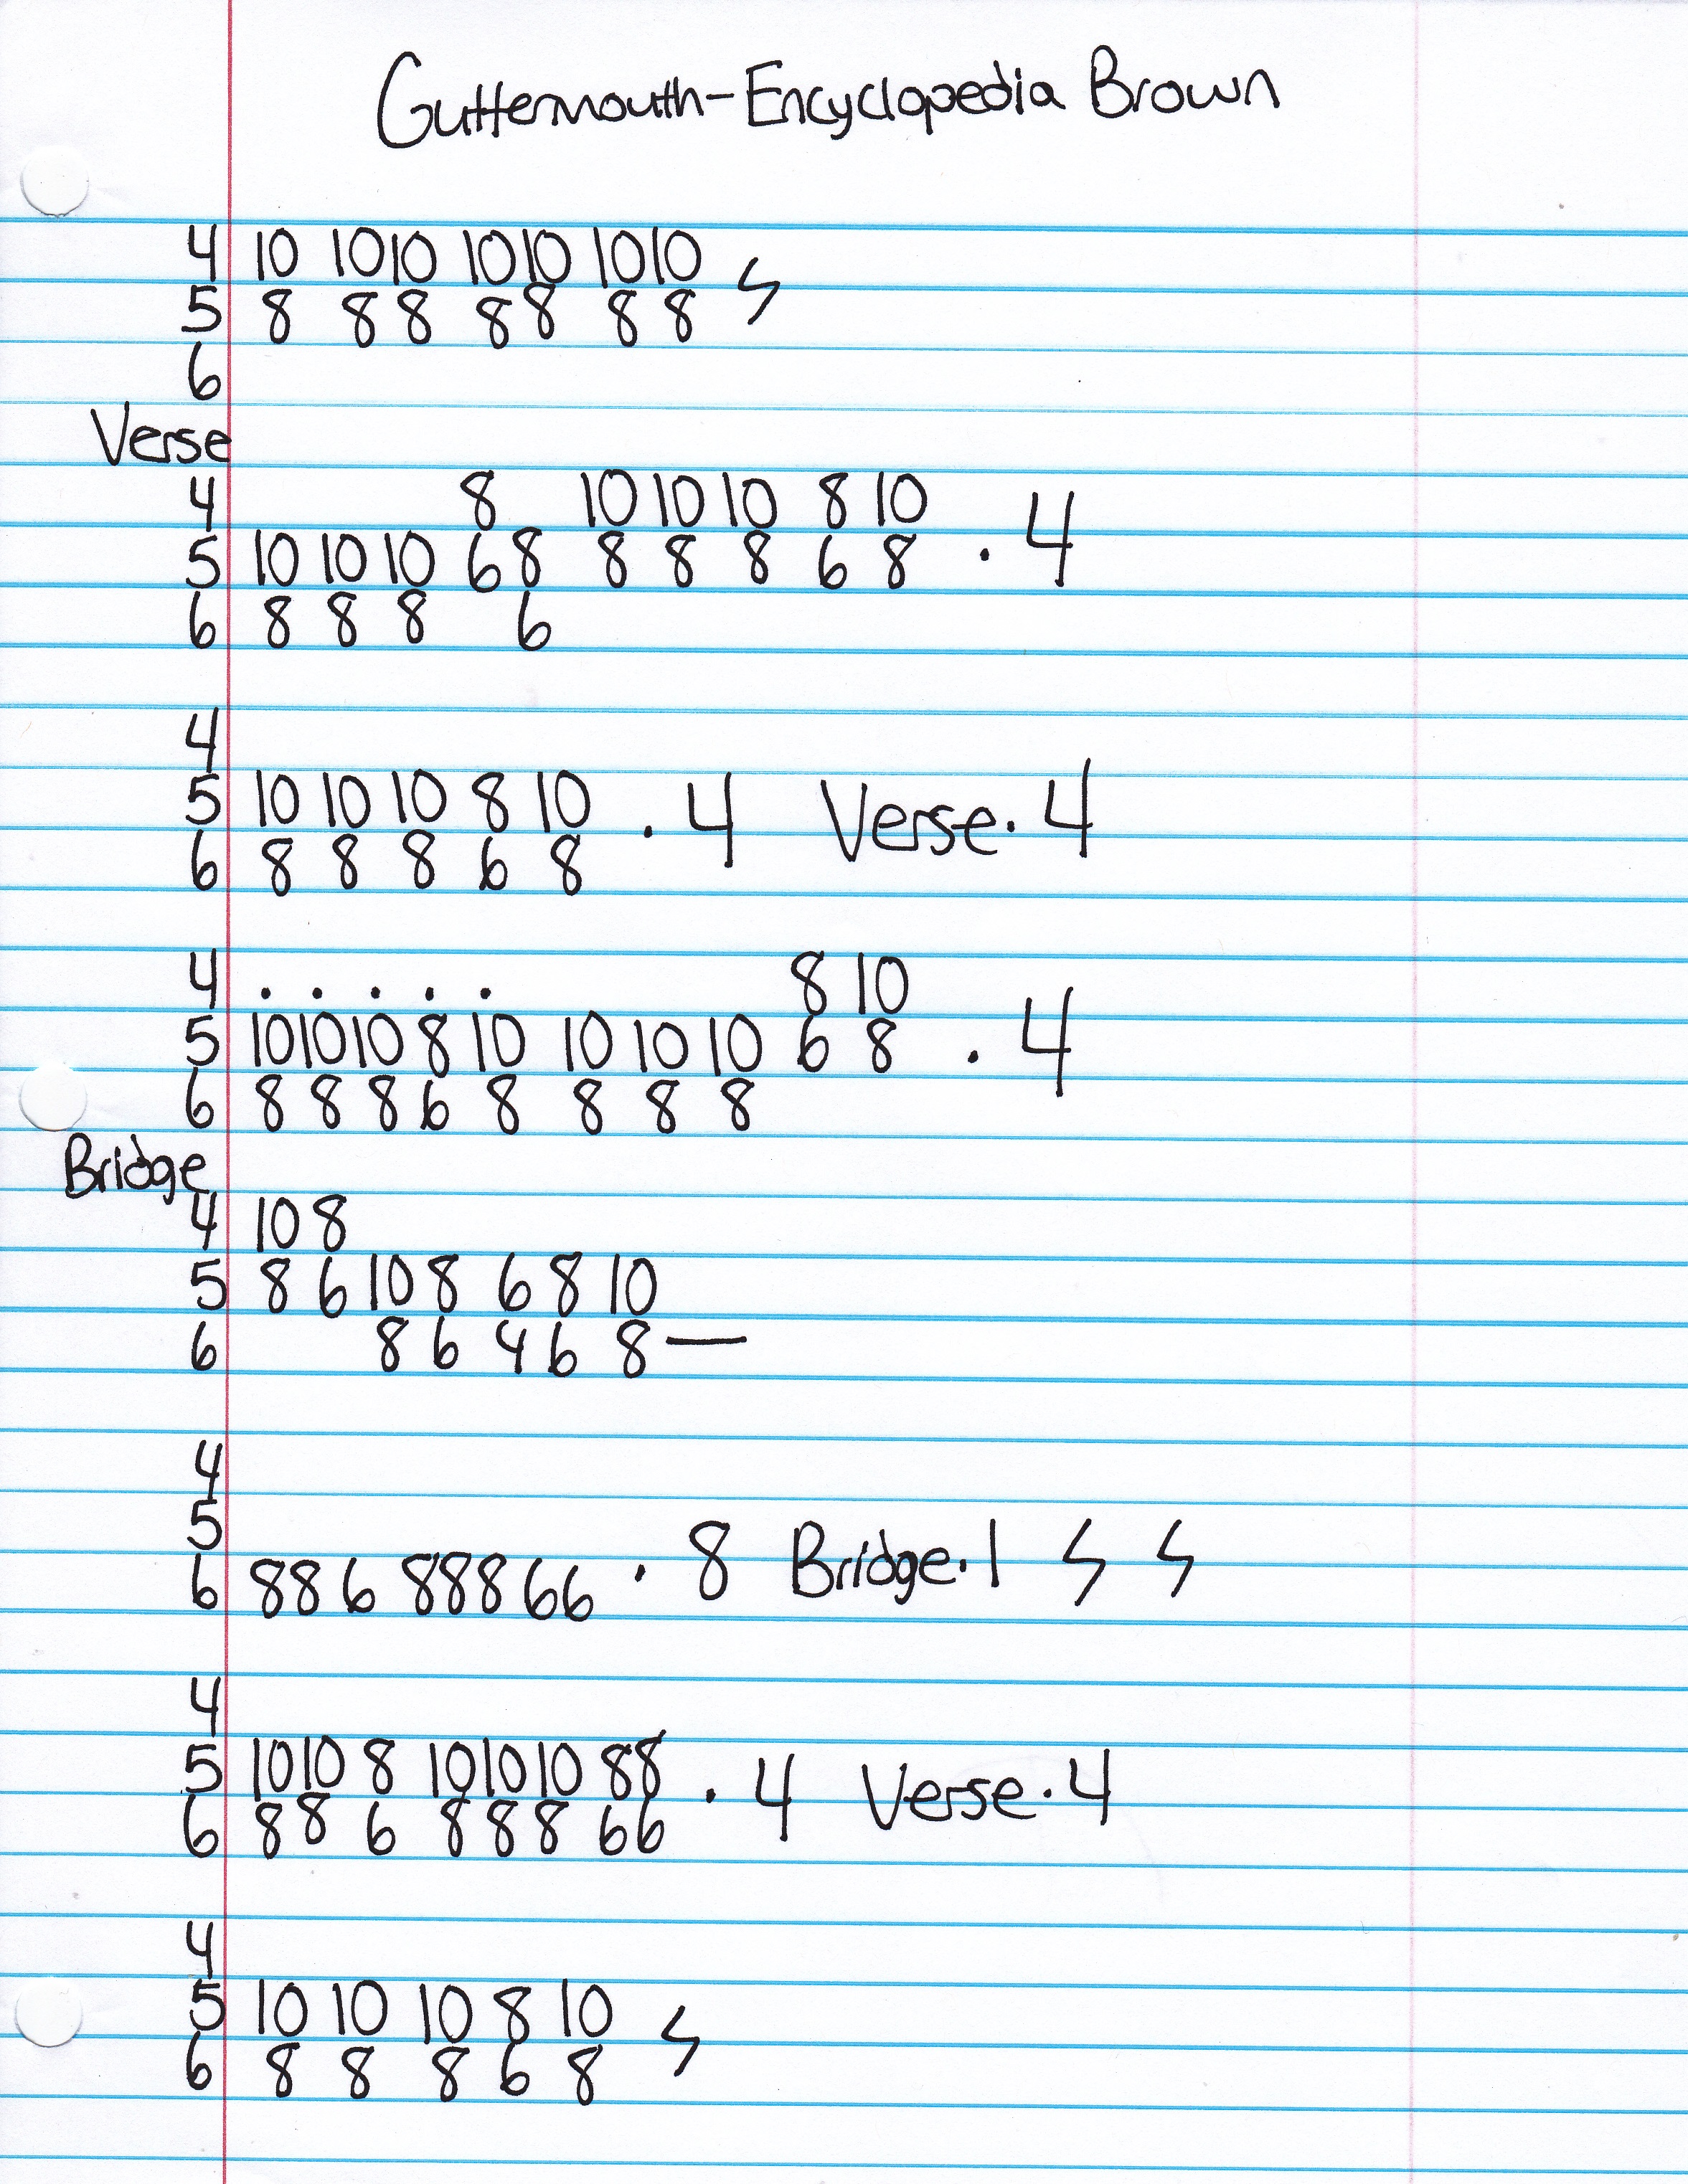 Guttermouth-Encyclopedia Brown
4 10 10 10 10 10 10 10 ϟ
5 8 8 8 8 8 8 8
6
Verse
4 8 10 10 10 8 10 . 4
5 10 10 10 6 8 8 8 8 6 8
6 8 8 8 6
4
5 10 10 10 8 10 . 4 Verse . 4
6 8 8 8 6 8
4 . . . . . 8 10
5 10 10 10 8 10 10 10 10 6 8 . 4
6 8 8 8 6 8 8 8 8
Bridge
4 10 8
5 8 6 10 8 6 8 10
6 8 6 4 6 8 —
4
5
6 8 8 6 8 8 8 6 6 . 8 Bridge . 1 ϟ ϟ
4
5 10 10 8 10 10 10 8 8 . 4 Verse . 4
6 8 8 6 8 8 8 6 6
4
5 10 10 10 8 10 ϟ
6 8 8 8 6 8